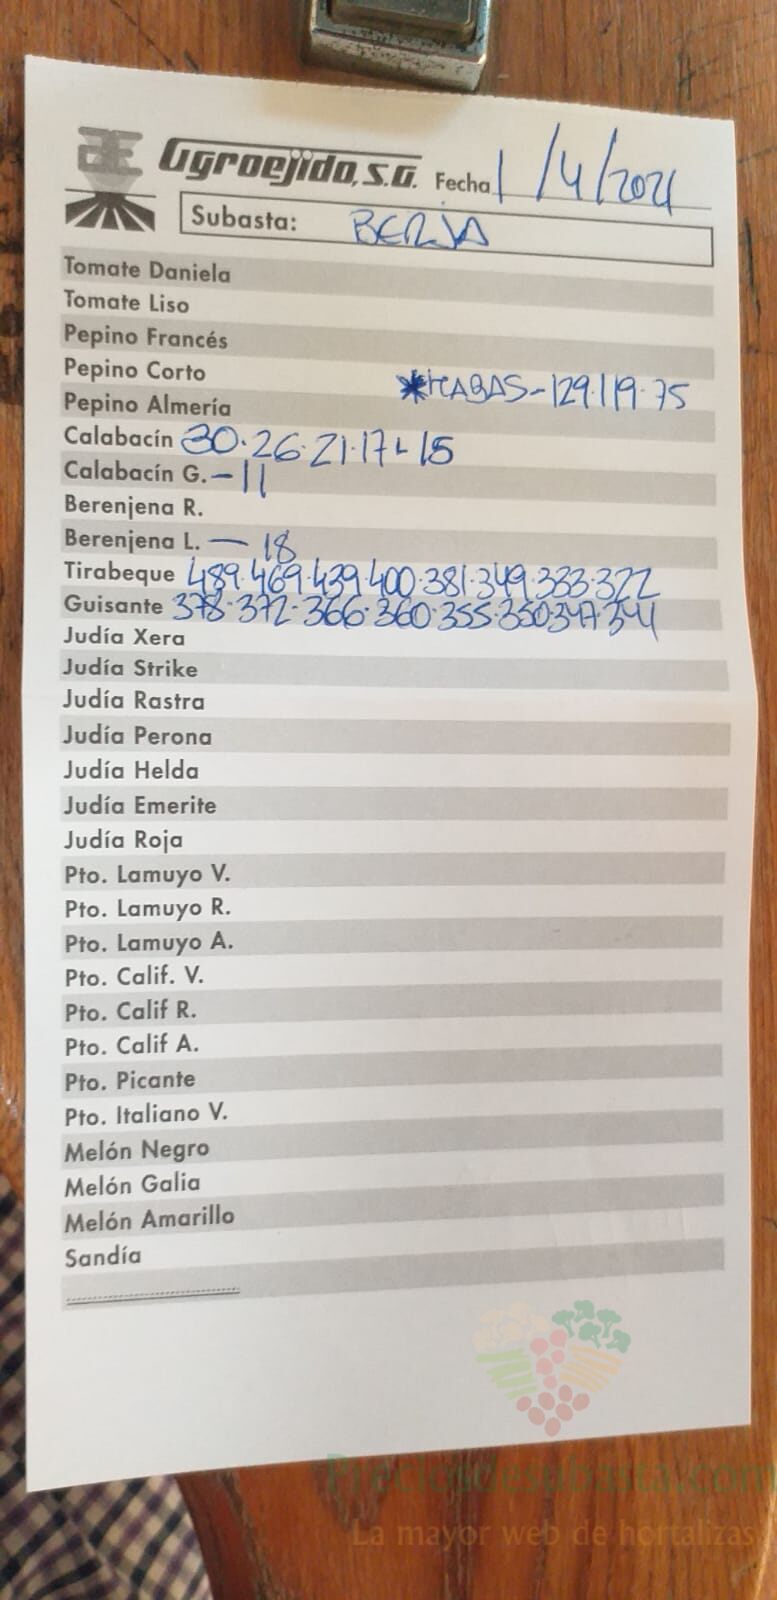 Agroejido, S.A. Fecha 1/4/2021
Subasta: BERJA
Tomate Daniela
Tomate Liso
Pepino Francés
Pepino Corto
*HABAS-129.119.75
Pepino Almería
Calabacín 30.26.21.17-15
Calabacín G.-11
Berenjena R.
Berenjena L.-18
Tirabeque 489.469.439.400.381.349.333.322
Guisante 378.372.366.360.355.350.347.341
Judía Xera
Judía Strike
Judía Rastra
Judía Perona
Judía Helda
Judía Emerite
Judía Roja
Pto. Lamuyo V.
Pto. Lamuyo R.
Pto. Lamuyo A.
Pto. Calif. V.
Pto. Calif R.
Pto. Calif A.
Pto. Picante
Pto. Italiano V.
Melón Negro
Melón Galia
Melón Amarillo
Sandía
Preciosdesubasta.com
La mayor web de hortalizas